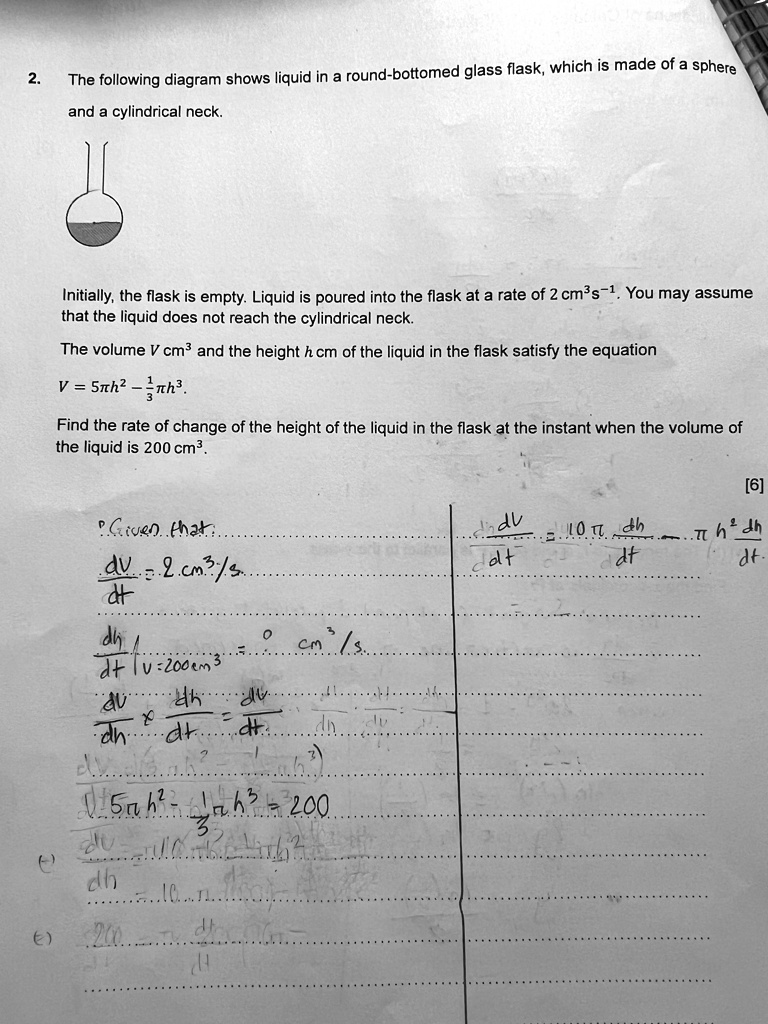 2. The following diagram shows liquid in a round-bottomed glass flask, which is made of a sphere
and a cylindrical neck.
Initially, the flask is empty. Liquid is poured into the flask at a rate of 2 cm³s⁻¹. You may assume
that the liquid does not reach the cylindrical neck.
The volume V cm³ and the height h cm of the liquid in the flask satisfy the equation
V = 5πh² − 1/3 πh³.
Find the rate of change of the height of the liquid in the flask at the instant when the volume of
the liquid is 200 cm³.
[6]
Given that:
dV/dt = 2 cm³/s
dh/dt | V=200cm³ = ? cm³/s
dV/dh × dh/dt = dV/dt
5πh² - 1/3 πh³ = 200
dV/dh
= 10 π
200
dV/dt = 10 π dh/dt - π h² dh/dt